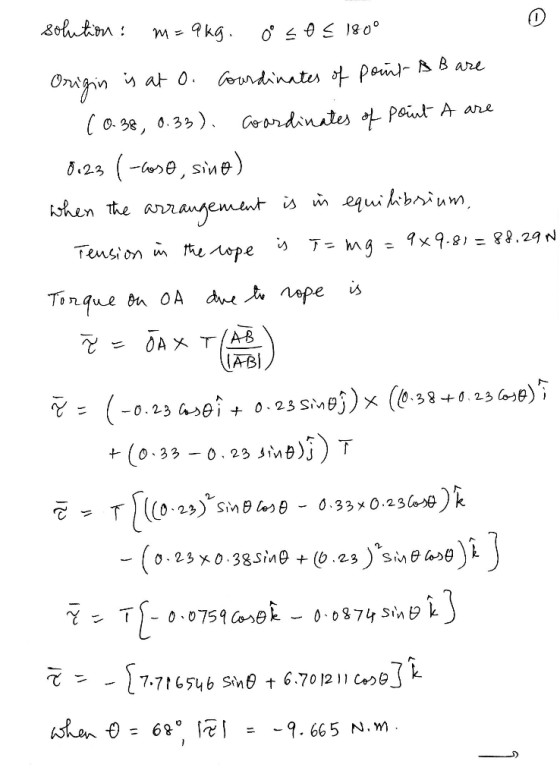 ①
solution : m = 9kg. 0° ≤ θ ≤ 180°
Origin is at O. Coordinates of point B are
(0.38, 0.33). Coordinates of point A are
0.23 (-cosθ, sinθ)
when the arrangement is in equilibrium,
Tension in the rope is T = mg = 9×9.81 = 88.29 N
Torque on OA due to rope is
τ̄ = ŌA × T (A̅B̅ / |A̅B̅|)
τ̄ = (-0.23 cosθ î + 0.23 sinθ ĵ) × ((0.38 + 0.23 cosθ) î
+ (0.33 - 0.23 sinθ) ĵ) T
τ̄ = T [((0.23)² sinθ cosθ - 0.33×0.23 cosθ) k̂
- (0.23×0.38 sinθ + (0.23)² sinθ cosθ) k̂ ]
τ̄ = T {- 0.0759 cosθ k̂ - 0.0874 sinθ k̂ ]
τ̄ = - [7.716546 sinθ + 6.701211 cosθ] k̂
when θ = 68°, |τ̄| = -9.665 N.m.
→